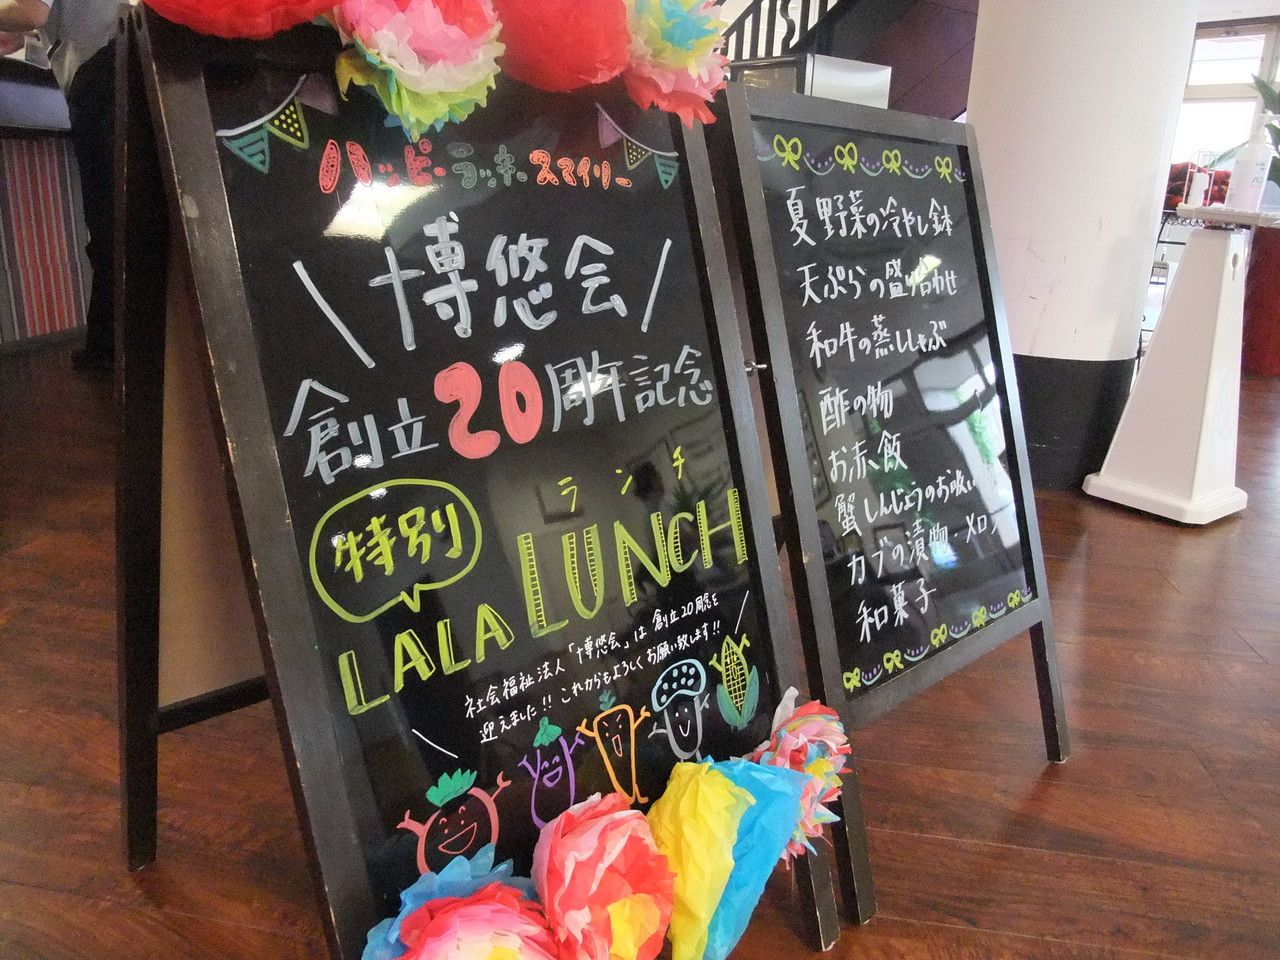 ハッピーラッキースマイリー
博悠会
創立20周年記念
特別
ランチ
LALA LUNCH
社会福祉法人「博悠会」は創立20周念を
迎えました!!これからもよろしくお願い致します!!
夏野菜の冷やし鉢
天ぷらの盛り合わせ
和牛の蒸ししゃぶ
酢の物
お赤飯
蟹しんじょうのお吸い
カブの漬物・メロン
和菓子